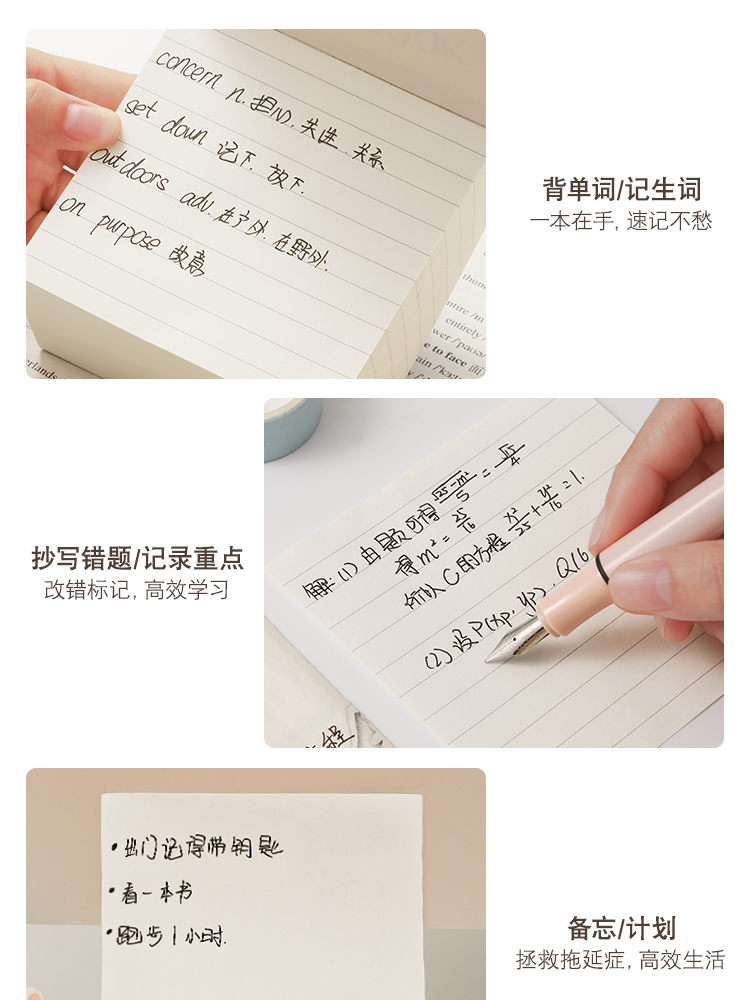 concern n. 担心. 关注. 关系
set down 记下. 放下.
outdoors adv. 在户外. 在野外.
on purpose 故意
背单词/记生词
一本在手, 速记不愁
entirely
to face
抄写错题/记录重点
改错标记, 高效学习
解: (1) 由题可得 √(25-m²)/5 = √15/4
得 m² = 25/16
所以 C 的方程 x²/25 + y²/16 = 1.
(2) 设 P(xp, yp), Q(6
程
• 出门记得带钥匙
• 看一本书
• 跑步 1 小时.
备忘/计划
拯救拖延症, 高效生活